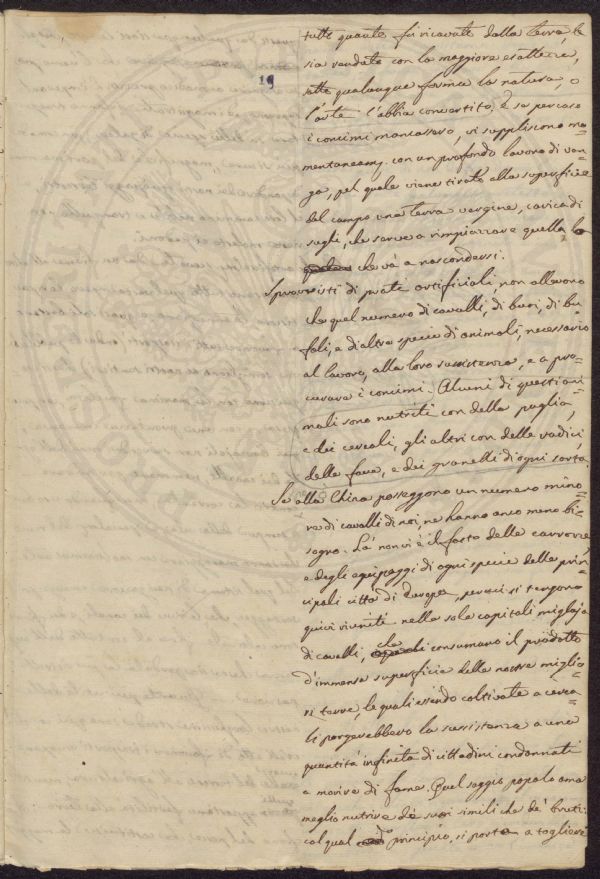 19
tutto quanto fu ricavato dalla terra le
sia renduto con la maggiore esattezza,
sotto qualunque forma la natura, o
l'arte l'abbia convertito. E se per caso
i concimi mancassero, vi suppliscono mo=
mentaneamᵉ. con un profondo lavoro di van=
ga, pel quale viene tirato alla superficie
del campo una terra vergine, carica di
sughi, che serve a rimpiazzare quella, la
che và a nascondersi.
Sprovvisti di prate artificiali, non allevano
che quel numero di cavalli, di buoi, di bu=
fali, e di altre specie di animali, necessario
al lavoro, alla loro sussistenza, e a pro=
curare i concimi. Alcuni di questi ani=
mali sono nutriti con della paglia,
e dei cereali, gli altri con delle radici,
delle fave, e dei granelli di ogni sorta.
Se alla China posseggono un numero mino=
re di cavalli di noi, ne hanno anco meno bi=
sogno. Là non vi è il fasto delle carrozze,
e degli equipaggi di ogni specie delle prin=
cipali città di Europa, perocì si tengono
quivi riuniti nelle sole capitali migliaja
di cavalli, che consumano il prodotto
d'immense superficie delle nostre miglio
ri terre, le quali essendo coltivate a cerea=
li porgerebbero la sussistenza a una
quantità infinita di cittadini condannati
a morire di fame. Quel saggio popolo ama
meglio nutrire de' suoi simili che de' bruti:
col qual principio, si porta a togliere